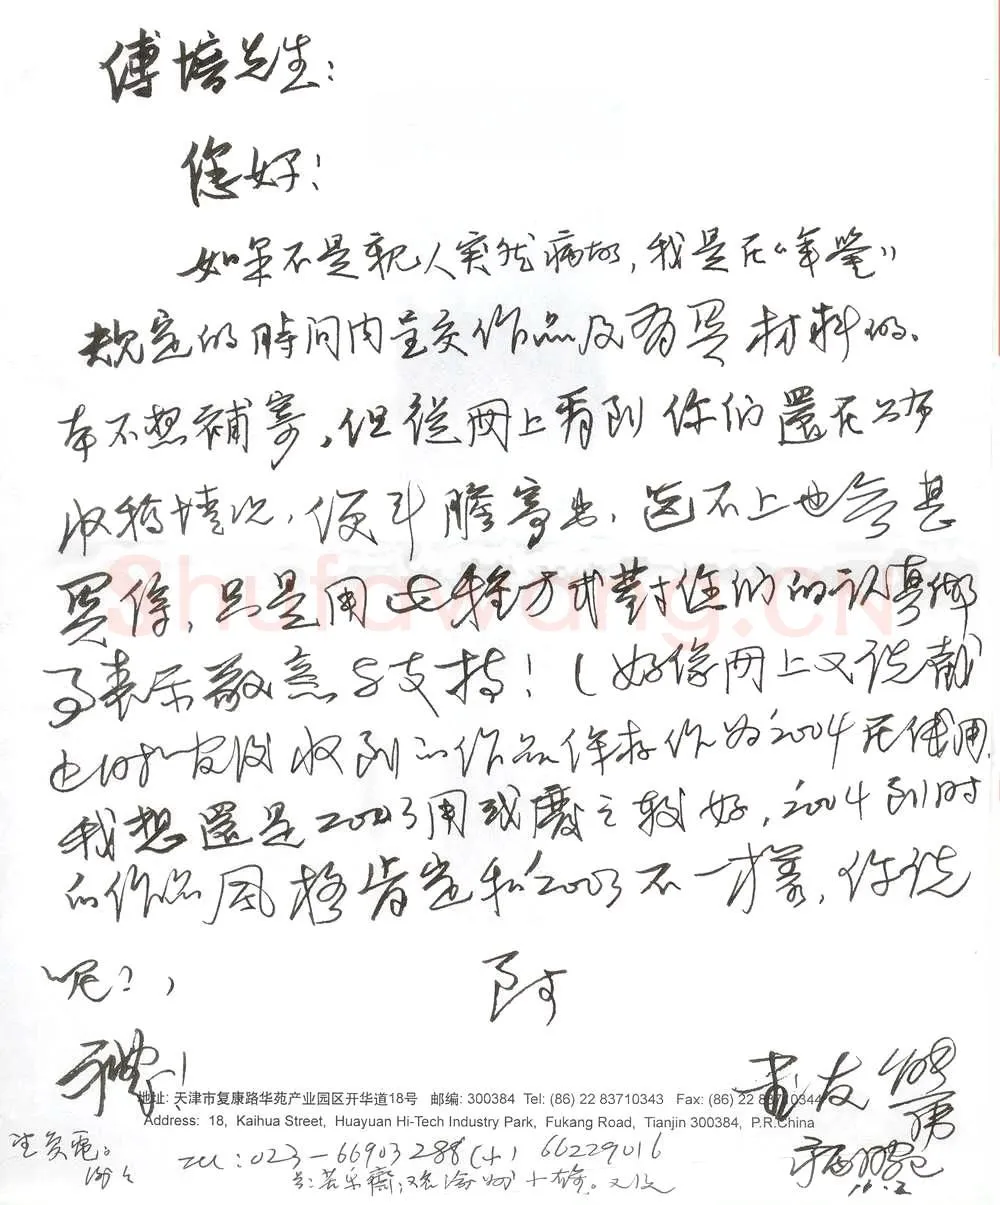 傅培先生:
您好!
如果不是親人突然病故,我是在"年鑒"
規定的時间内呈交作品及有関材料的.
本不想補寄,但從网上看到你們還在公布
收稿情况,便斗膽寄出,選不上也無甚
関係,只是用此種方式對您们的认真做
事表示敬意与支持!(好像网上又说截
止时 没收到的作品保存作为2004年使用.
我想還是2003用或廢之較好,2004到时
的作品风格肯定和2003不一樣,你说
呢?,
礼!
書友
地址: 天津市复康路华苑产业园区开华道18号 邮编: 300384 Tel: (86) 22 83710343 Fax: (86) 22 83710344
Address: 18, Kaihua Street, Huayuan Hi-Tech Industry Park, Fukang Road, Tianjin 300384, P.R.China
望复電。
谢谢
Tel:023-66903288(小) 66229016
Shufawang.CN